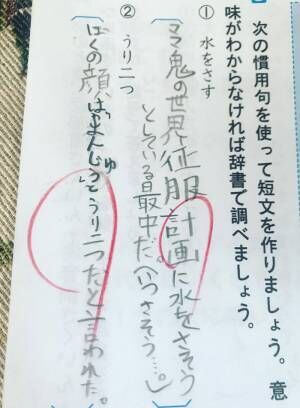 次の慣用句を使って短文を作りましょう。意
味がわからなければ辞書で調べましょう。
① 水をさす
ママ鬼の世界征服計画に水をさそう
としている最中だ。(いつさそう…。)
② うり二つ
ぼくの顔が、まんじゅうとうり二つだと言われた。